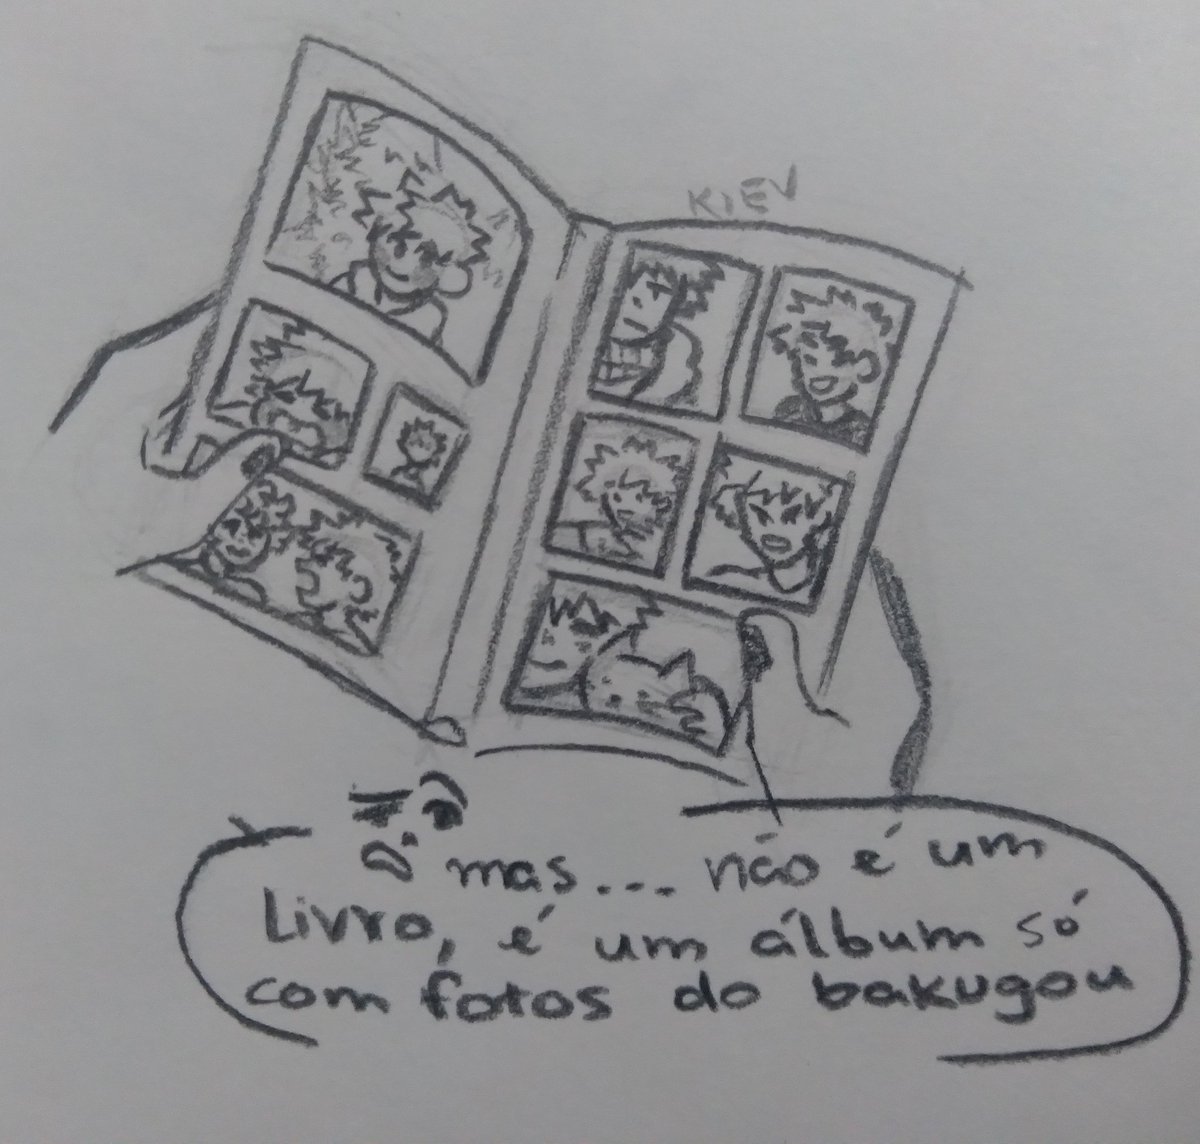 KIEV
mas... não é um
Livro, é um álbum só
com fotos do bakugou